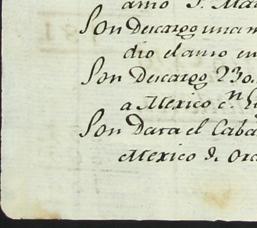 amo S. Ma
Son Descargo una m
dio el amo en
Son Descargo 230.
a Mexico c.n
Son Data el Caba
Mexico d. Ord